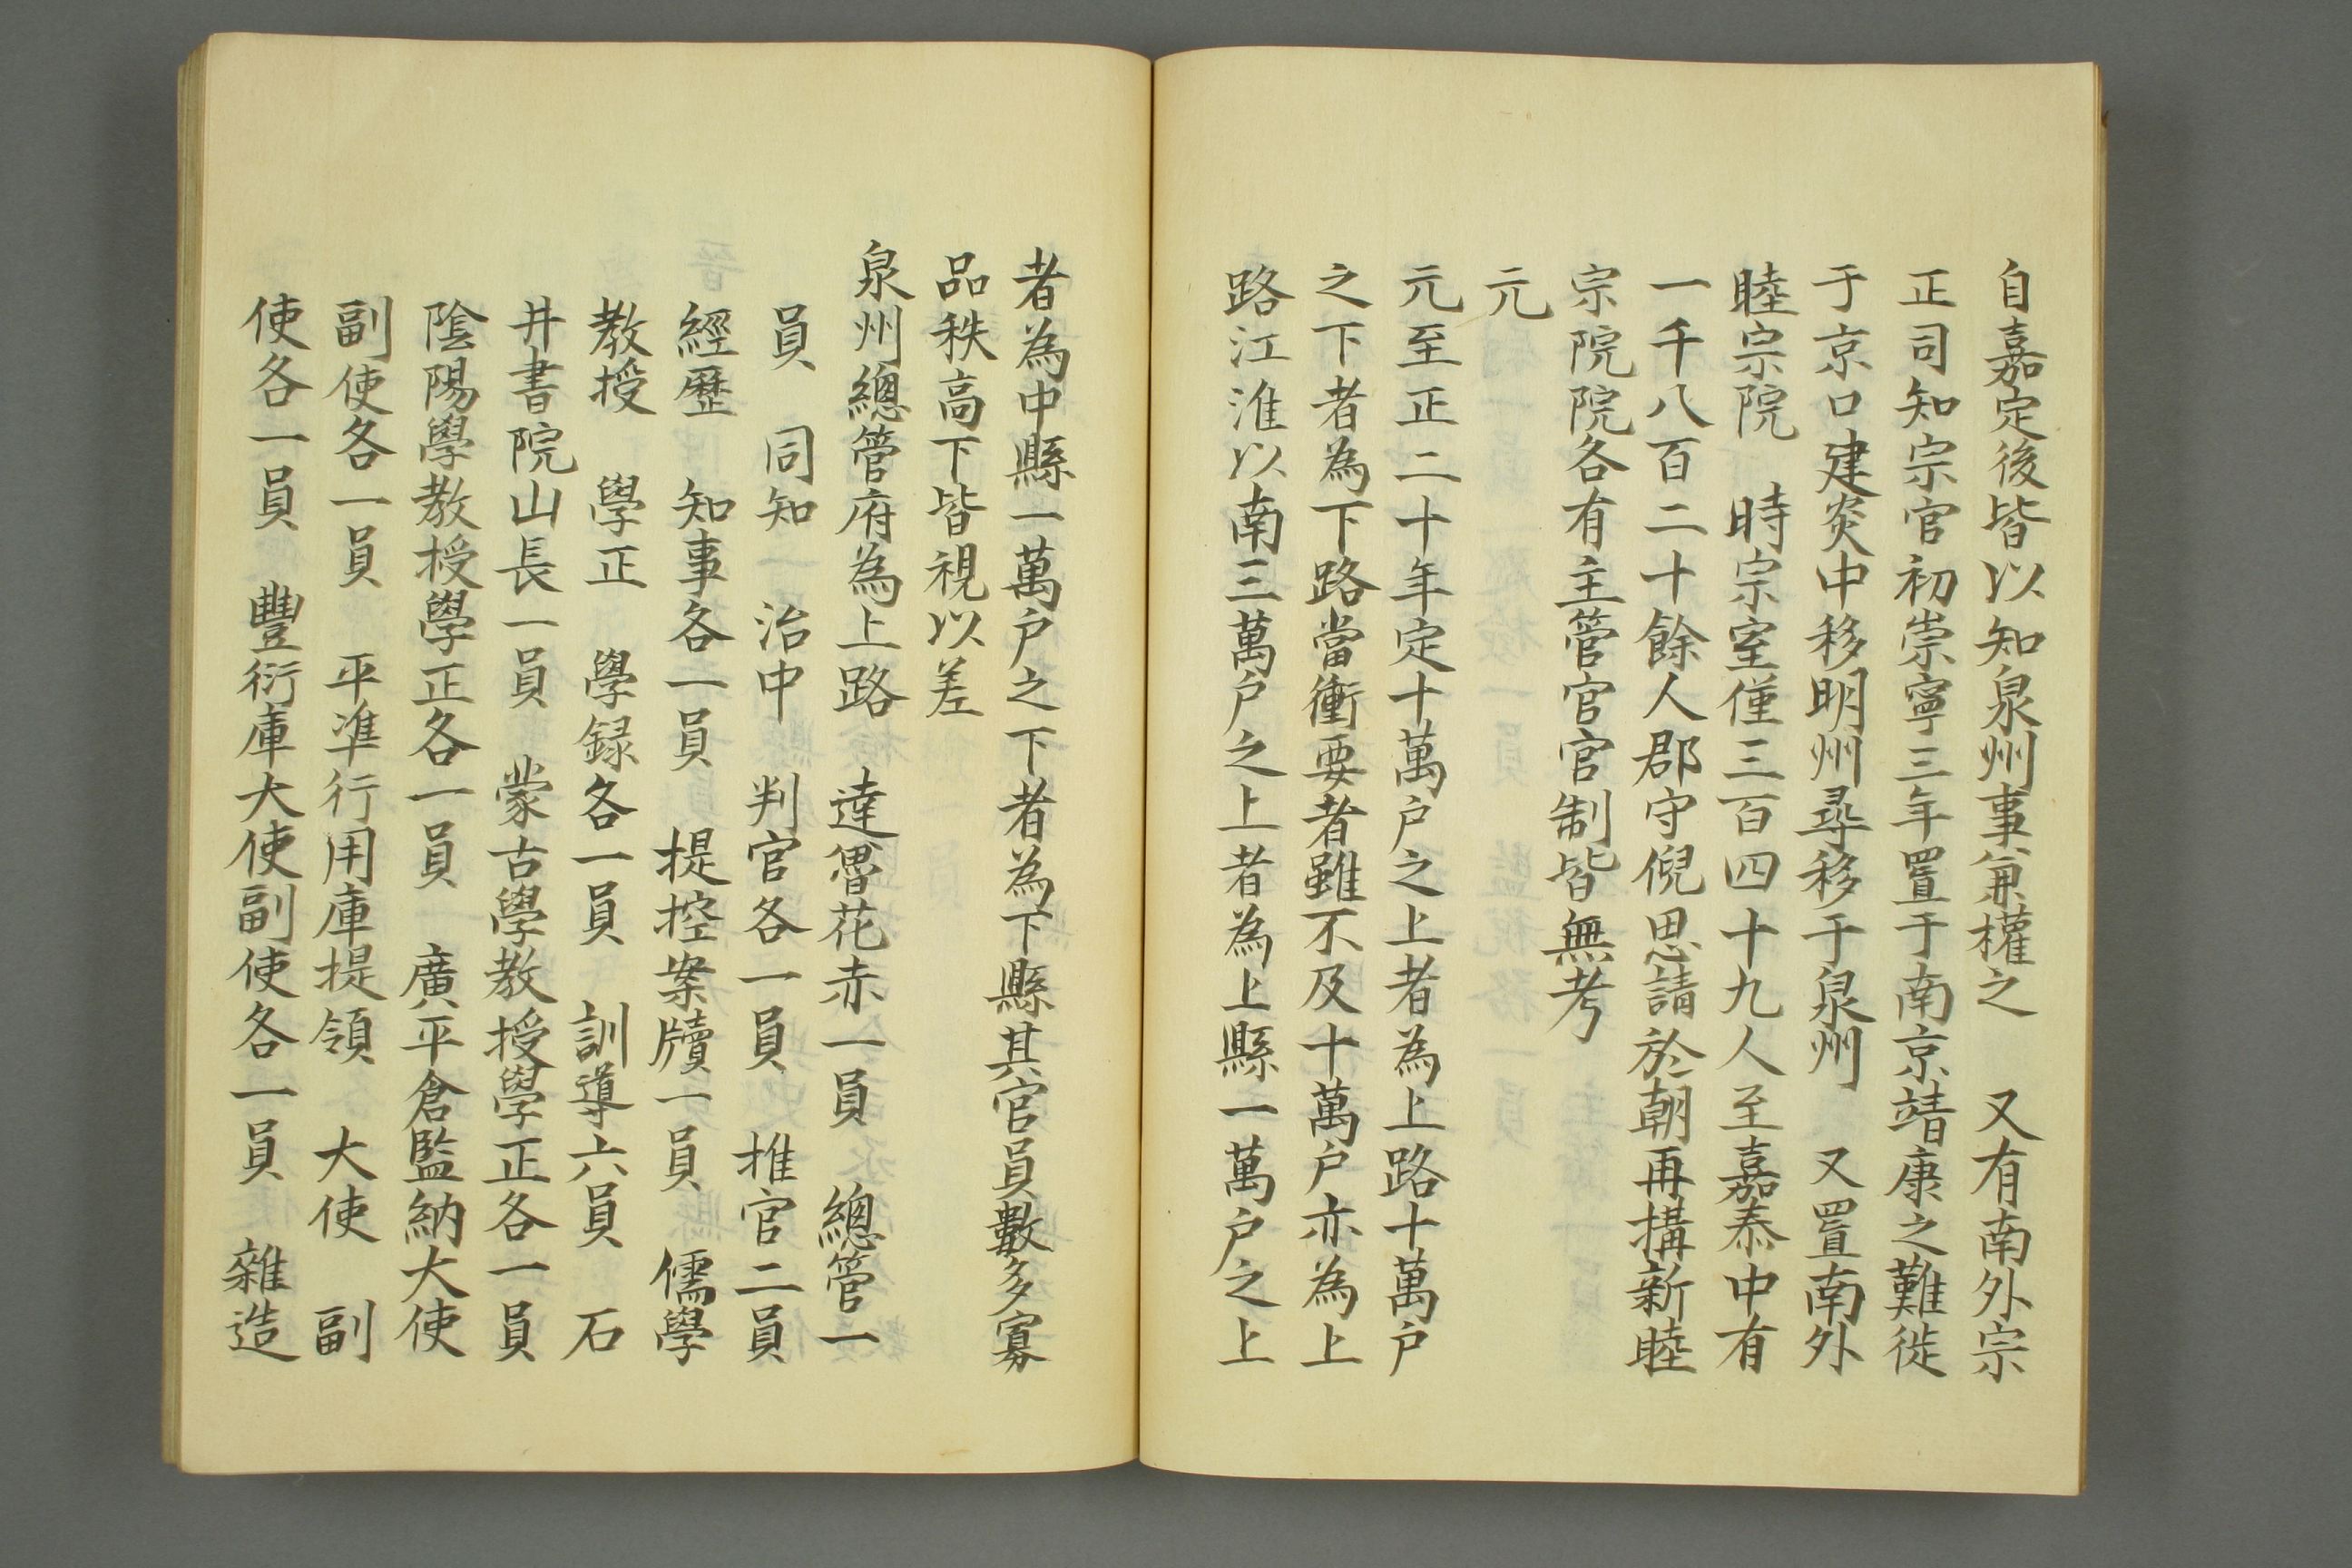 自嘉定後皆以知泉州事兼權之　又有南外宗
正司知宗官初崇寧三年置于南京靖康之難徙
于京口建炎中移明州尋移于泉州　又置南外
睦宗院　時宗室僅三百四十九人至嘉泰中有
一千八百二十餘人郡守倪思請於朝再搆新睦
宗院院各有主管官官制皆無考
元
元至正二十年定十萬户之上者為上路十萬户
之下者為下路當衝要者雖不及十萬户亦為上
路江淮以南三萬户之上者為上縣一萬户之上
者為中縣一萬户之下者為下縣其官員數多寡
品秩高下皆視以差
泉州總管府為上路　達魯花赤一員　總管一
員　同知　治中　判官各一員　推官二員
經歷　知事各一員　提控案牘一員　儒學
教授　學正　學録各一員　訓導六員　石
井書院山長一員　蒙古學教授學正各一員
陰陽學教授學正各一員　廣平倉監納大使
副使各一員　平準行用庫提領　大使　副
使各一員　豐衍庫大使副使各一員　雜造